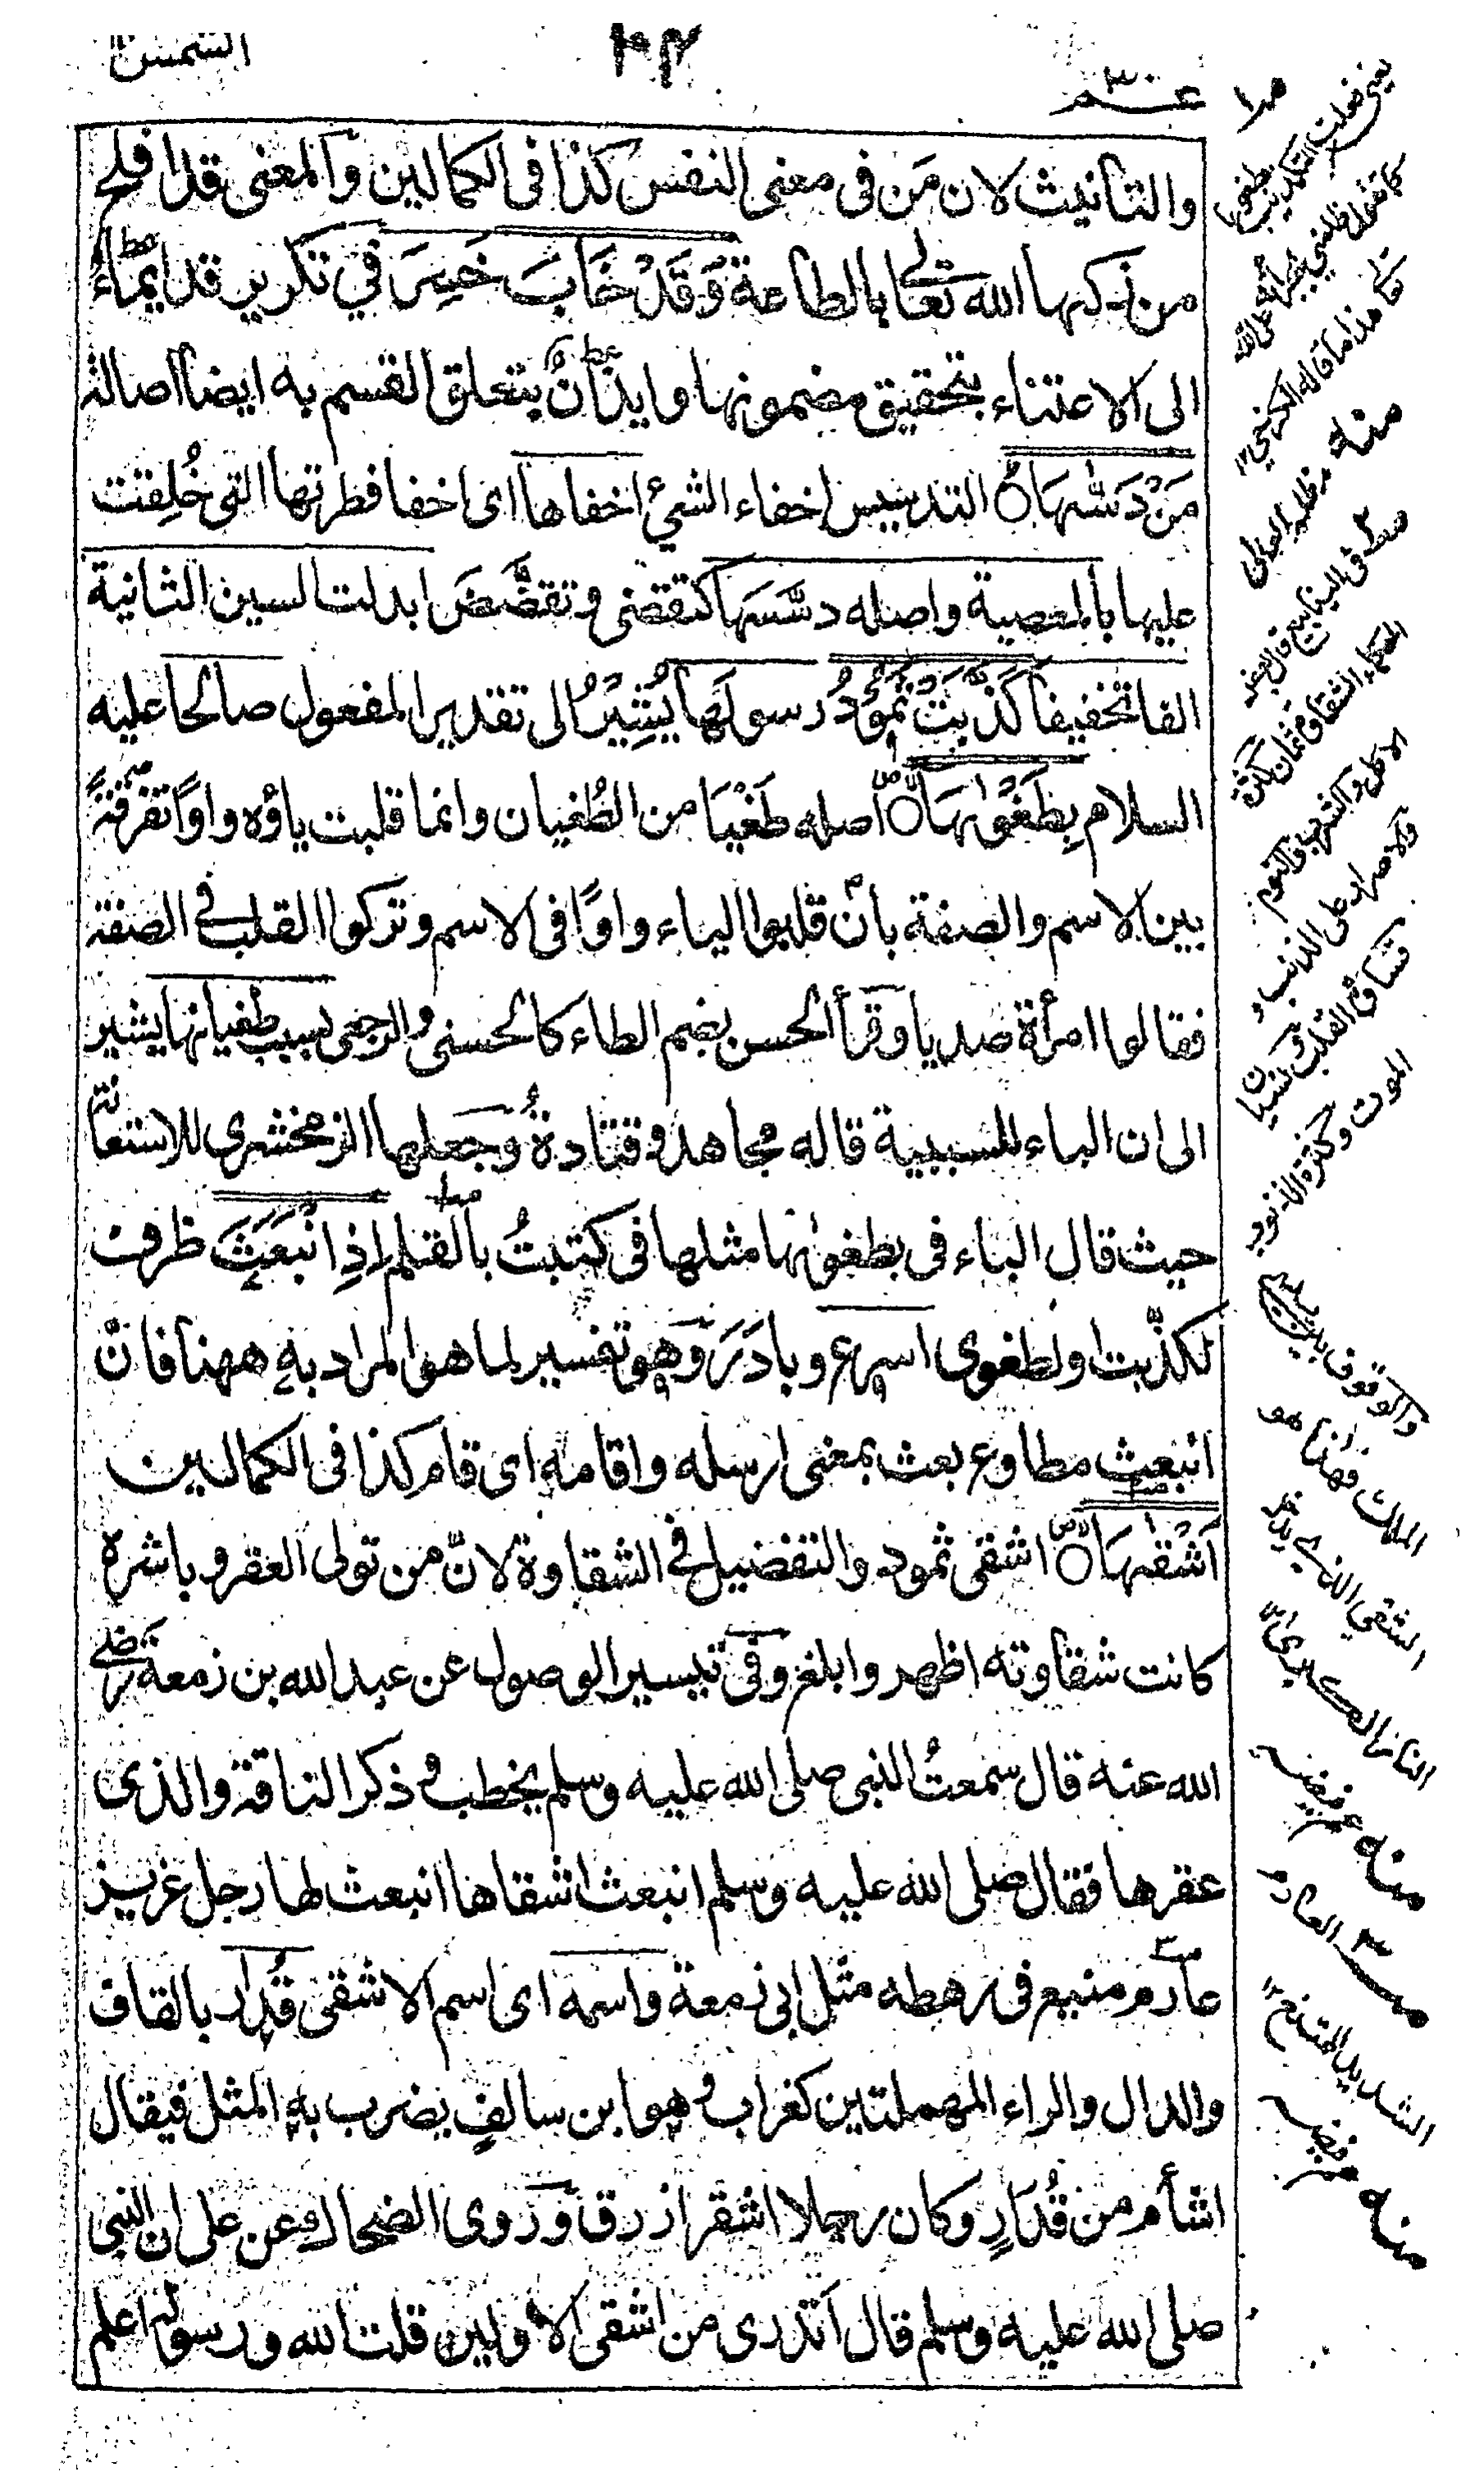 الشمس
١٠٢
عم ٣٠
والتانيث لان مَن فى معنى النفس كذا فى الكمالين والمعنى قد افلح
من زكىها الله تعالى بالطاعة وَقَدْ خَابَ خَسِرَ في تكرير قد ايماءٌ
الى الاعتناء بتحقيق مضمونها وايذانٌ بتعلق القسم به ايضا اصالة
مَنْ دَسّٰىهَا۝ التدسيس اخفاء الشئ اخفاها اى اخفا فطرتها التى خُلِقت
عليها بالمعصية واصله دسّسَها كتقضى وتقضّضَ ابدلت السين الثانية
الفا تخفيفا كَذَّبَتْ ثَمُوْدُ رسولَها يُشِيْرُ الى تقدير المفعول صالحا عليه
السلام بِطَغْوٰىهَا۝ اصله طَغْيَا من الطُغيان وانما قلبت ياؤه واوًا تفرقةً
بين الاسم والصفة بأن قلبوا الياء واوًا فى الاسم وتركوا القلب فى الصفة
فقالوا امرأة صديا وقرأ الحسن بضم الطاء كالحسنى والرجعى بسبب طغيانها يشير
الى ان الباء للسببية قاله مجاهد وقتادةُ وجعلها الزمخشرى للاستعانة
حيث قال الباء فى بطغوٰىها مثلها فى كتبتُ بالقلم اِذِ انْبَعَثَ ظرف
لكذّبت او لطغوى اسرع وبادَرَ وهو تفسير لما هو المراد به ههنا فانّ
انبعث مطاوع بعث بمعنى ارسله واقامه اى قام كذا فى الكمالين
اَشْقٰىهَا۝ اشقى ثمود والتفضيل فى الشقاوة لانّ من تولى العقر وباشره
كانت شقاوته اظهر وابلغ وفى تيسير الوصول عن عبد الله بن زمعة رضى
الله عنه قال سمعتُ النبى صلى الله عليه وسلم يخطب وذكر الناقة والذى
عقرها فقال صلى الله عليه وسلم انبعث اشقاها انبعث لها رجل عزيز
عارم منيع فى رهطه مثل ابى زمعة واسمه اى اسم الاشقى قُدار بالقاف
والدال والراء المهملتين كغراب وهو ابن سالفٍ يضرب به المثل فيقال
اشأم من قُدَارٍ وكان رجلا اشقر ازرق وروى الضحاك عن على ان النبى
صلى الله عليه وسلم قال أتدرى من اشقى الاولين قلت الله ورسوله اعلم
يعنى فعلت التكذيب بطغوىها
كما تقول ظلمنى بجرأته على الله
هذا ما قاله الكرخى ١٢
منه
قال بعض
الحكماء الشقاق ثمان كثرة
الاكل والشرب والنوم
والاصرار على الذنب و
قساوة القلب ونسيان
الموت وكثرة الذنوب
والوقوف بين يدى
الملك فهذا هو
الشقى الذى يدخل
النار الكبرى ١٢
منه
العارم
الشديد الممتنع ١٢
منه